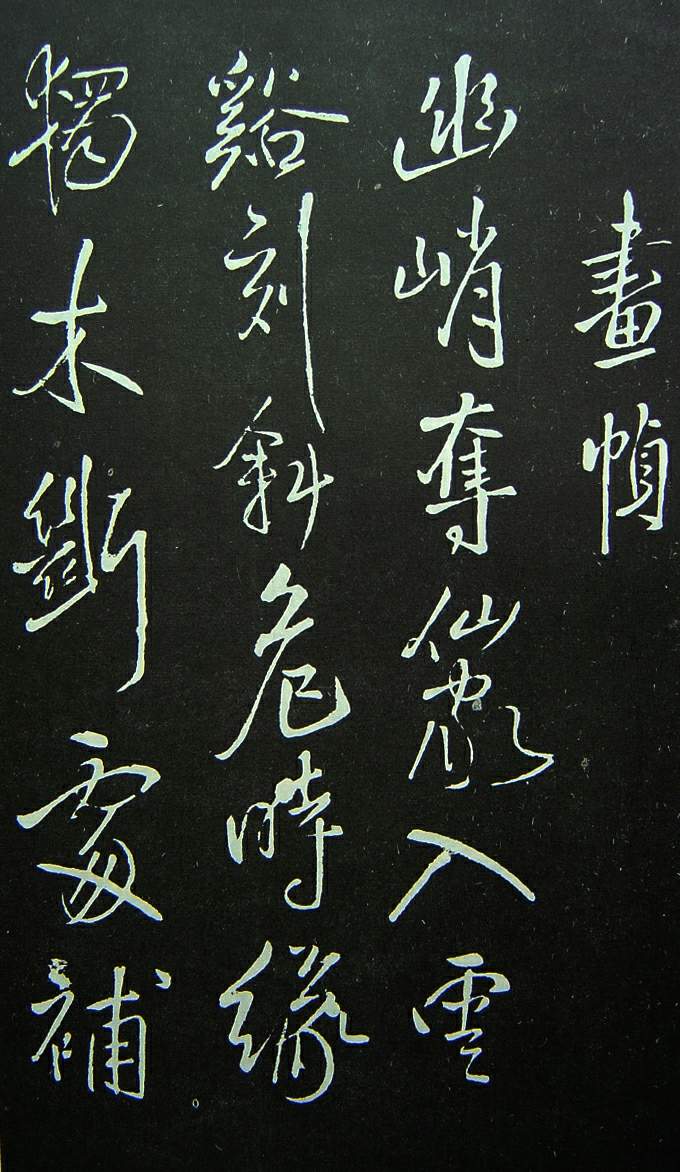 畫幀
幽峭奪仙家入雲
谿刻斜危時緣
獨木斷處補